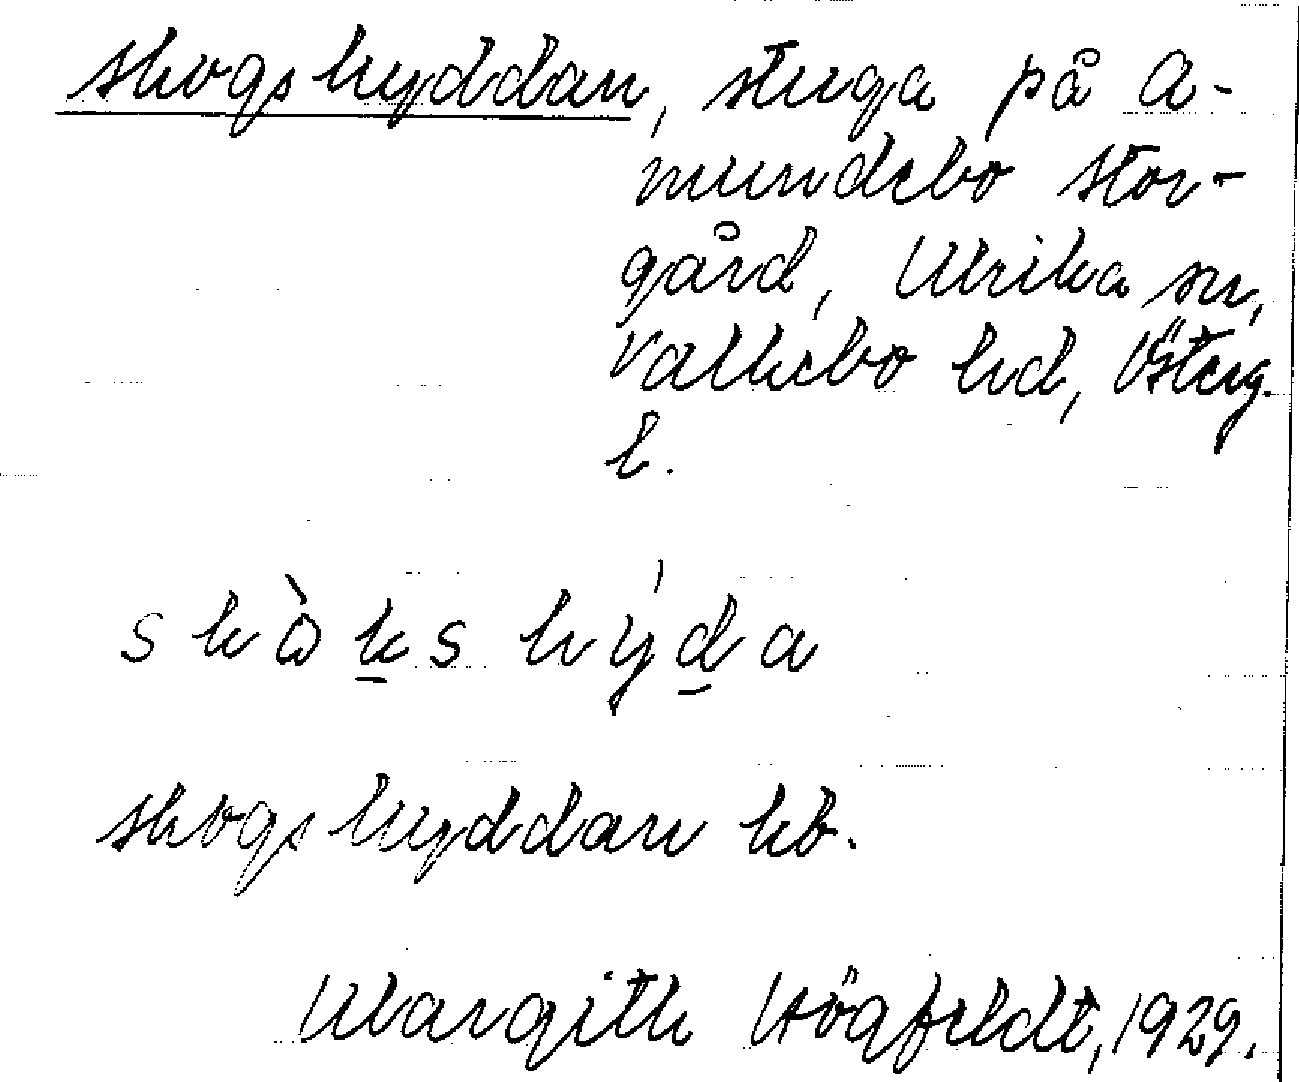 skogshyddan, stuga på A-
mundebo stor-
gård, Ulrika sn,
Valkebo hd, Österg.
l.
skò̀kshýda
skogshyddan kb.
Margith Högfeldt, 1929.